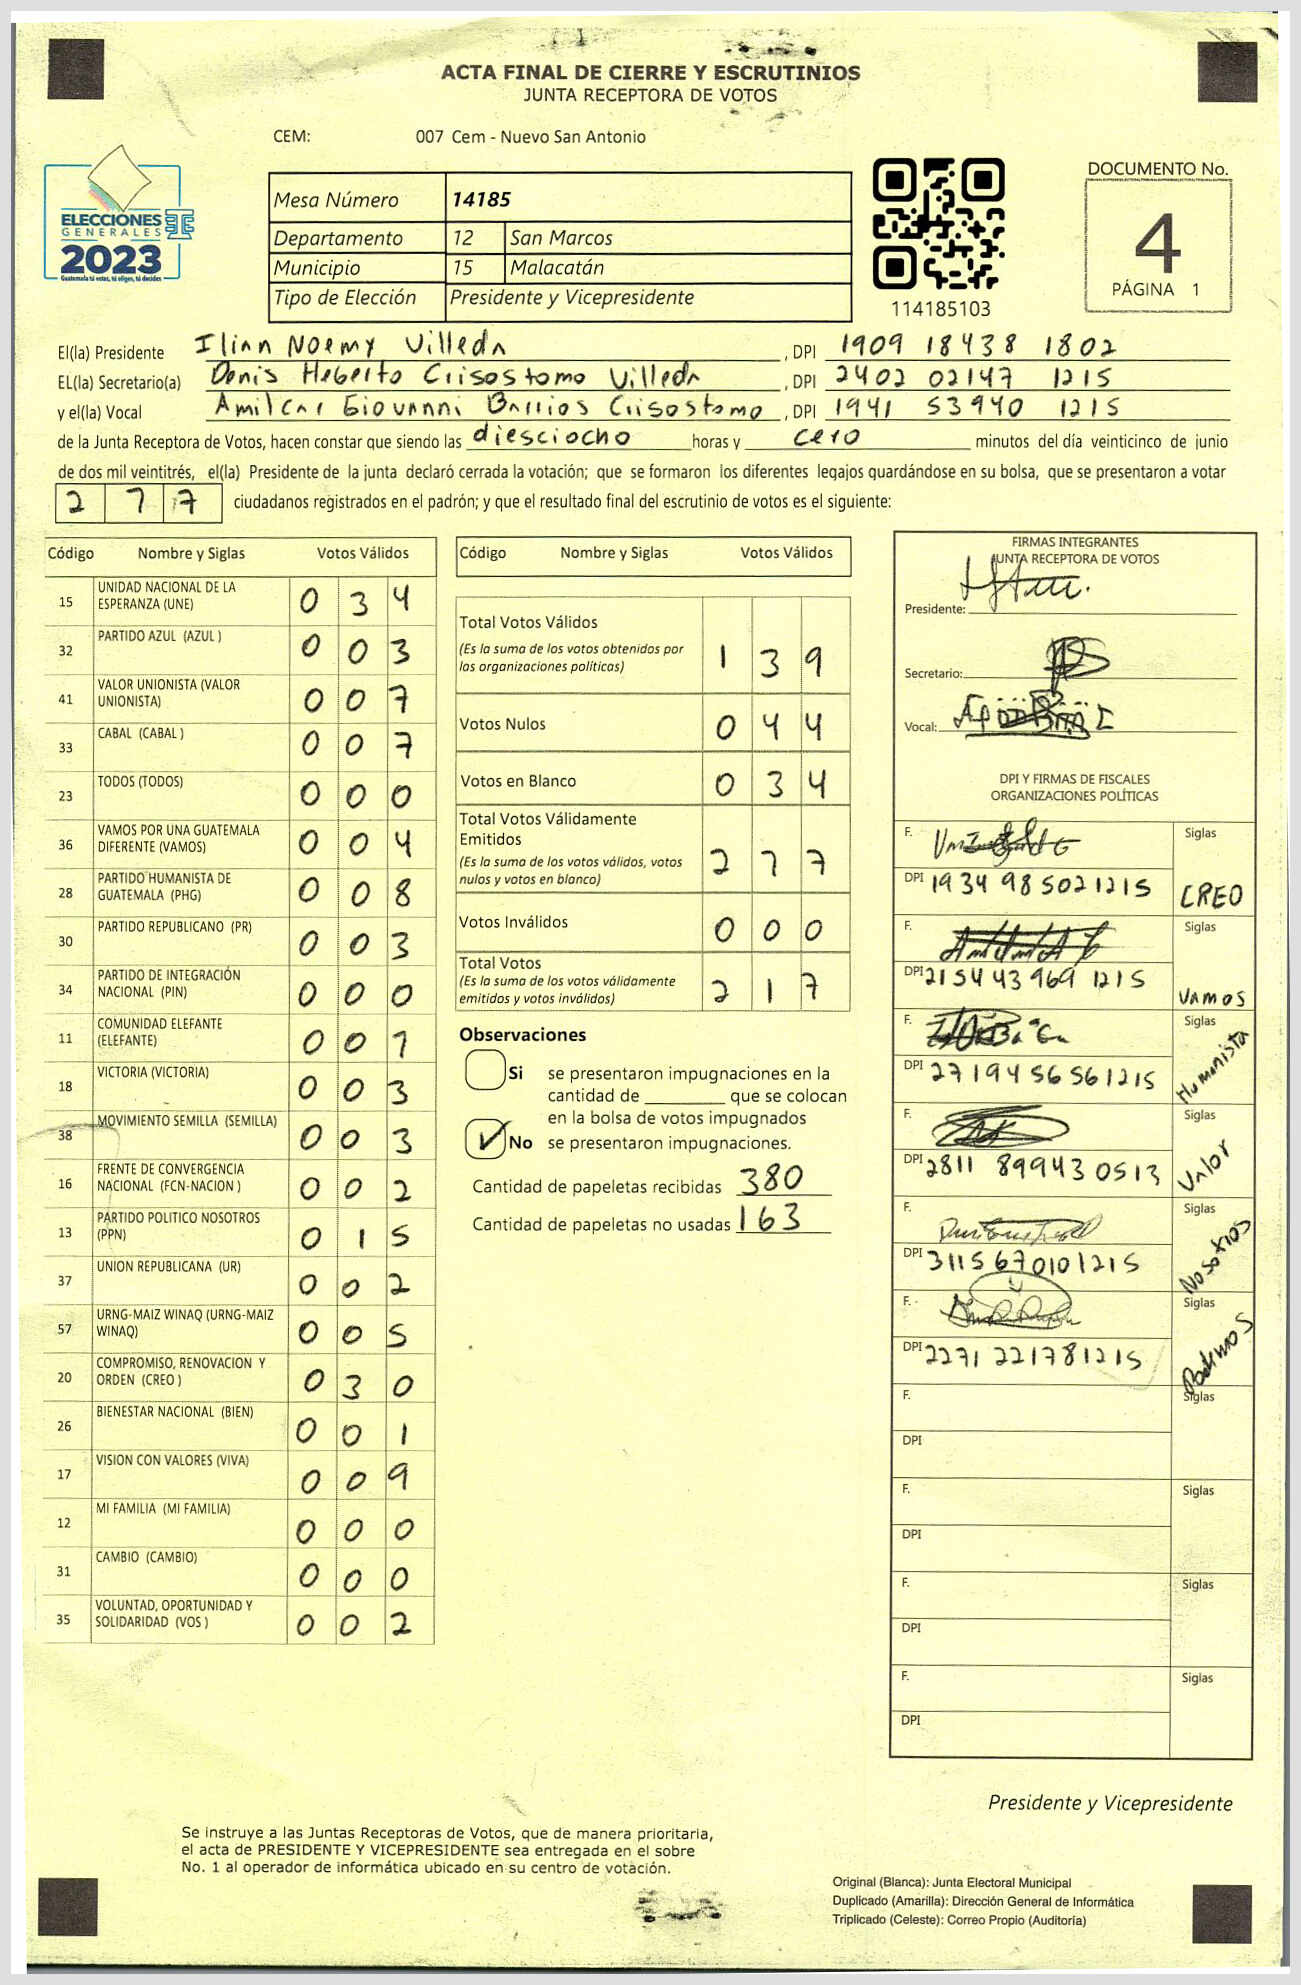 ACTA FINAL DE CIERRE Y ESCRUTINIOS
JUNTA RECEPTORA DE VOTOS
CEM: 007 Cem - Nuevo San Antonio
ELECCIONES
GENERALES
2023
Guatemala tú votas, tú eliges, tú decides
Mesa Número 14185
Departamento 12 San Marcos
Municipio 15 Malacatán
Tipo de Elección Presidente y Vicepresidente
114185103
DOCUMENTO No.
4
PÁGINA 1
El(la) Presidente Ilian Noemy Villeda, DPI 1909 18438 1802
EL(la) Secretario(a) Denis Heberto Crisostomo Villeda, DPI 2402 02147 1215
y el(la) Vocal Amilcar Giovanni Barrios Crisostomo, DPI 1941 53940 1215
de la Junta Receptora de Votos, hacen constar que siendo las diesciocho horas y cero minutos del día veinticinco de junio
de dos mil veintitrés, el(la) Presidente de la junta declaró cerrada la votación; que se formaron los diferentes legajos guardándose en su bolsa, que se presentaron a votar
2 7 7 ciudadanos registrados en el padrón; y que el resultado final del escrutinio de votos es el siguiente:
Código Nombre y Siglas Votos Válidos
15 UNIDAD NACIONAL DE LA ESPERANZA (UNE) 0 3 4
32 PARTIDO AZUL (AZUL ) 0 0 3
41 VALOR UNIONISTA (VALOR UNIONISTA) 0 0 7
33 CABAL (CABAL ) 0 0 7
23 TODOS (TODOS) 0 0 0
36 VAMOS POR UNA GUATEMALA DIFERENTE (VAMOS) 0 0 4
28 PARTIDO HUMANISTA DE GUATEMALA (PHG) 0 0 8
30 PARTIDO REPUBLICANO (PR) 0 0 3
34 PARTIDO DE INTEGRACIÓN NACIONAL (PIN) 0 0 0
11 COMUNIDAD ELEFANTE (ELEFANTE) 0 0 1
18 VICTORIA (VICTORIA) 0 0 3
38 MOVIMIENTO SEMILLA (SEMILLA) 0 0 3
16 FRENTE DE CONVERGENCIA NACIONAL (FCN-NACION ) 0 0 2
13 PARTIDO POLITICO NOSOTROS (PPN) 0 1 5
37 UNION REPUBLICANA (UR) 0 0 2
57 URNG-MAIZ WINAQ (URNG-MAIZ WINAQ) 0 0 5
20 COMPROMISO, RENOVACION Y ORDEN (CREO ) 0 3 0
26 BIENESTAR NACIONAL (BIEN) 0 0 1
17 VISION CON VALORES (VIVA) 0 0 9
12 MI FAMILIA (MI FAMILIA) 0 0 0
31 CAMBIO (CAMBIO) 0 0 0
35 VOLUNTAD, OPORTUNIDAD Y SOLIDARIDAD (VOS ) 0 0 2
Código Nombre y Siglas Votos Válidos
Total Votos Válidos 1 3 9
(Es la suma de los votos obtenidos por
las organizaciones políticas)
Votos Nulos 0 4 4
Votos en Blanco 0 3 4
Total Votos Válidamente
Emitidos 2 7 7
(Es la suma de los votos válidos, votos
nulos y votos en blanco)
Votos Inválidos 0 0 0
Total Votos 2 1 7
(Es la suma de los votos válidamente
emitidos y votos inválidos)
Observaciones
Si se presentaron impugnaciones en la
cantidad de ________ que se colocan
en la bolsa de votos impugnados
No se presentaron impugnaciones.
Cantidad de papeletas recibidas 380
Cantidad de papeletas no usadas 163
FIRMAS INTEGRANTES
JUNTA RECEPTORA DE VOTOS
Presidente:
Secretario:
Vocal:
DPI Y FIRMAS DE FISCALES
ORGANIZACIONES POLÍTICAS
F. Siglas
DPI 1934 98502 1215 CREO
F. Siglas
DPI 2154 43969 1215 VAMOS
F. Siglas
DPI 2719456561215 Humanista
F. Siglas
DPI 2811 89943 0513 Valor
F. Siglas
DPI 3115 67010 1215 Nosotros
F. Siglas
DPI 2271 22178 1215 Podemos
F. Siglas
DPI
F. Siglas
DPI
F. Siglas
DPI
F. Siglas
DPI
Presidente y Vicepresidente
Se instruye a las Juntas Receptoras de Votos, que de manera prioritaria,
el acta de PRESIDENTE Y VICEPRESIDENTE sea entregada en el sobre
No. 1 al operador de informática ubicado en su centro de votación.
Original (Blanca): Junta Electoral Municipal
Duplicado (Amarilla): Dirección General de Informática
Triplicado (Celeste): Correo Propio (Auditoría)